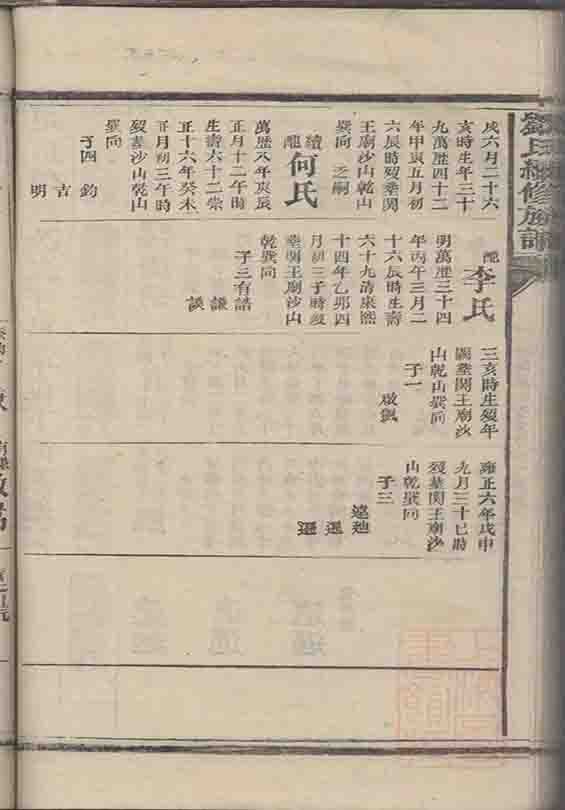 劉氏續修族譜
戌六月二十六
亥時生年三十
九萬歷四十二
年甲寅五月初
六辰時歿葬関
王廟沙山乾山
巽向 乏嗣
續配
何氏
萬歷八年庚辰
正月十二午時
生壽六十二崇
正十六年癸未
正月初三午時
歿葬沙山乾山
巽向
子四 鈞
吉
明
配
李氏
明萬歷三十四
年丙午三月二
十六辰時生壽
六十九清康熙
十四年乙卯四
月初三子時歿
葬関王廟沙山
乾巽向
子三有諾
謙
談
三亥時生歿年
闕葬関王廟沙
山乾山巽向
子一
啟佩
雍正六年戊申
九月三十巳時
歿葬関王廟沙
山乾巽向
子三